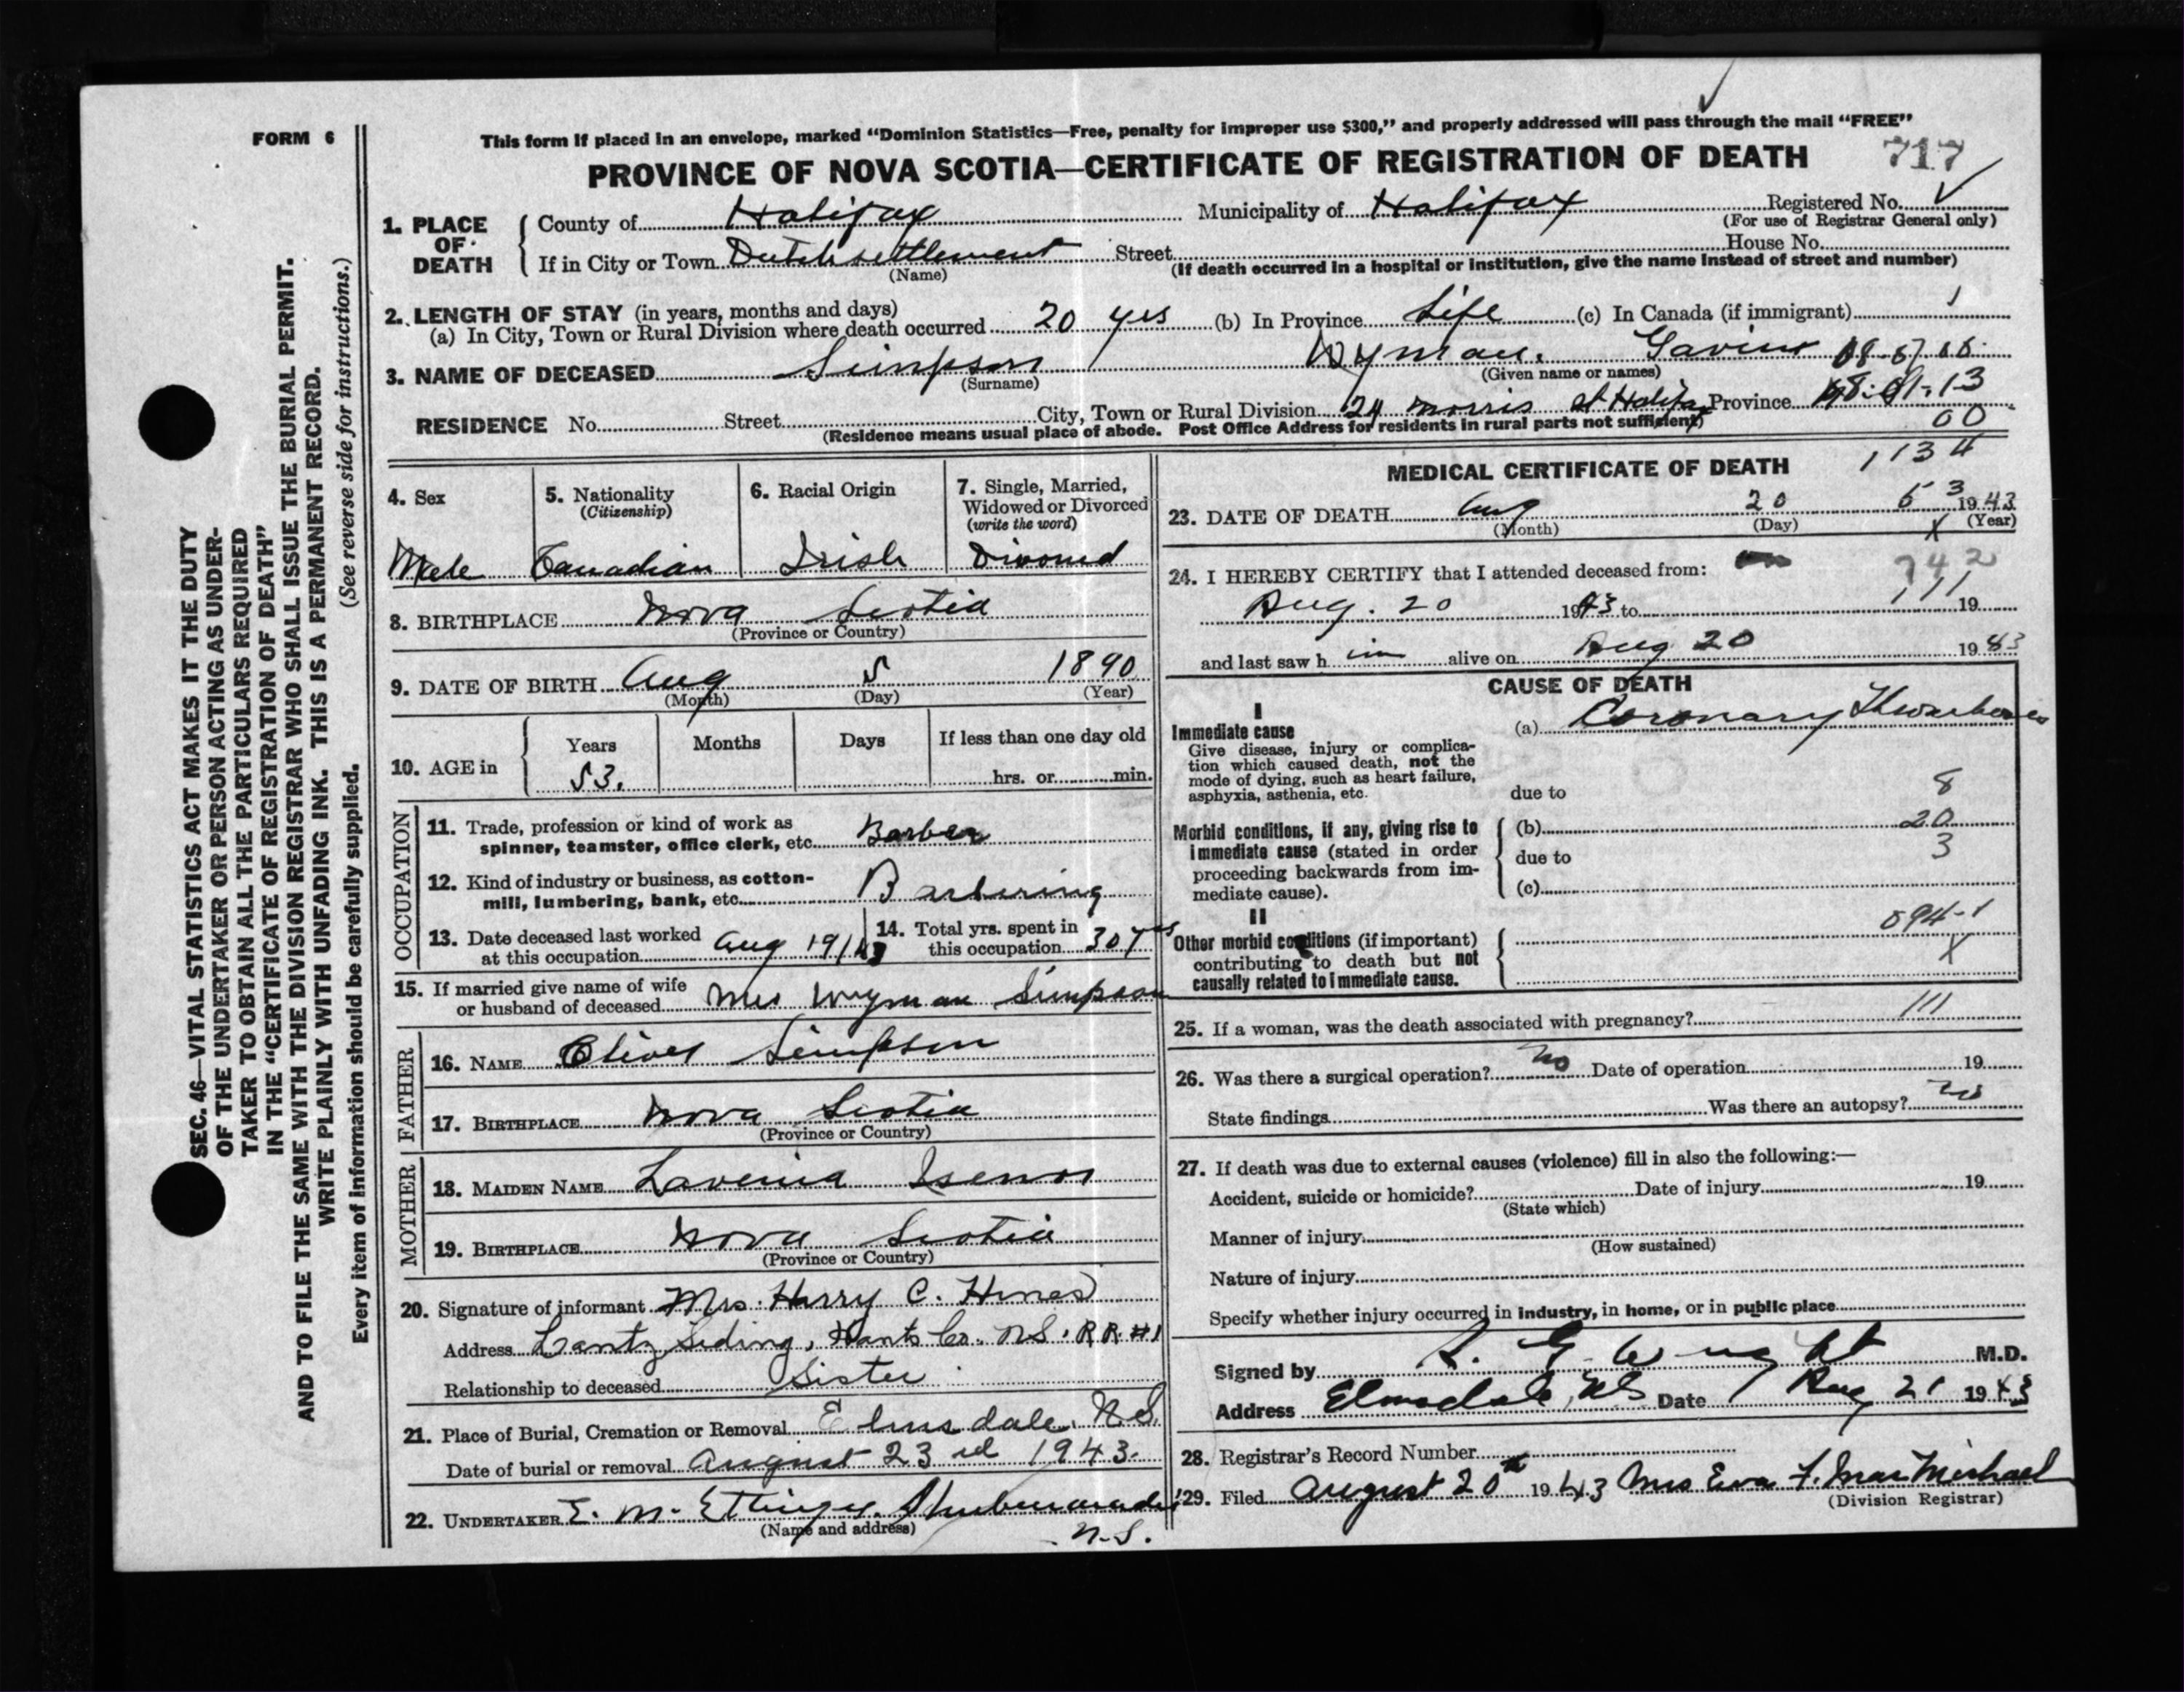 FORM 6
This form if placed in an envelope, marked "Dominion Statistics—Free, penalty for improper use $300," and properly addressed will pass through the mail "FREE"
PROVINCE OF NOVA SCOTIA—CERTIFICATE OF REGISTRATION OF DEATH 717
1. PLACE OF DEATH { County of Halifax Municipality of Halifax Registered No.
(For use of Registrar General only)
If in City or Town Dutch settlement Street House No.
(Name) (If death occurred in a hospital or institution, give the name instead of street and number)
2. LENGTH OF STAY (in years, months and days)
(a) In City, Town or Rural Division where death occurred 20 yrs (b) In Province Life (c) In Canada (if immigrant)
3. NAME OF DECEASED Simpson Wyman. Gavin
(Surname) (Given name or names)
RESIDENCE No. Street City, Town or Rural Division 24 Morris St Halifax Province
(Residence means usual place of abode. Post Office Address for residents in rural parts not sufficient) 00
4. Sex 5. Nationality (Citizenship) 6. Racial Origin 7. Single, Married, Widowed or Divorced (write the word)
Male Canadian Irish Divorced
8. BIRTHPLACE Nova Scotia
(Province or Country)
9. DATE OF BIRTH Aug 5 1890
(Month) (Day) (Year)
10. AGE in { Years Months Days If less than one day old
53. hrs. or min.
OCCUPATION
11. Trade, profession or kind of work as spinner, teamster, office clerk, etc. Barber
12. Kind of industry or business, as cotton-mill, lumbering, bank, etc. Barbering
13. Date deceased last worked at this occupation Aug 1943 14. Total yrs. spent in this occupation 30 yrs
15. If married give name of wife or husband of deceased Mrs Wyman Simpson
FATHER
16. NAME Oliver Simpson
17. BIRTHPLACE Nova Scotia
(Province or Country)
MOTHER
18. MAIDEN NAME Lavenia Isenor
19. BIRTHPLACE Nova Scotia
(Province or Country)
20. Signature of informant Mrs. Harry C. Hines
Address Lantz Siding, Hants Co. N.S. R.R. #1
Relationship to deceased Sister
21. Place of Burial, Cremation or Removal Elmsdale, N.S.
Date of burial or removal August 23rd 1943.
22. UNDERTAKER E. M. Ettinger. Shubenacadie
(Name and address) N.S.
MEDICAL CERTIFICATE OF DEATH 1134
23. DATE OF DEATH Aug 20 53 1943
(Month) (Day) X (Year)
24. I HEREBY CERTIFY that I attended deceased from: 742
Aug. 20 1943 to 111 19
and last saw h im alive on Aug 20 1943
CAUSE OF DEATH
I
Immediate cause (a) Coronary Thrombosis
Give disease, injury or complication which caused death, not the mode of dying, such as heart failure, asphyxia, asthenia, etc.
due to 8
Morbid conditions, if any, giving rise to immediate cause (stated in order proceeding backwards from immediate cause).
(b) 20
due to 3
(c)
II
Other morbid conditions (if important) contributing to death but not causally related to immediate cause.
094-1
X
25. If a woman, was the death associated with pregnancy? 111
26. Was there a surgical operation? No Date of operation 19
State findings Was there an autopsy? no
27. If death was due to external causes (violence) fill in also the following:—
Accident, suicide or homicide? Date of injury 19
(State which)
Manner of injury
(How sustained)
Nature of injury
Specify whether injury occurred in industry, in home, or in public place
Signed by G. Wright M.D.
Address Elmsdale, NS Date Aug 21 1943
28. Registrar's Record Number
29. Filed August 20th 1943 Mrs Eva F. MacMichael
(Division Registrar)
SEC. 46—VITAL STATISTICS ACT MAKES IT THE DUTY
OF THE UNDERTAKER OR PERSON ACTING AS UNDER-
TAKER TO OBTAIN ALL THE PARTICULARS REQUIRED
IN THE "CERTIFICATE OF REGISTRATION OF DEATH"
AND TO FILE THE SAME WITH THE DIVISION REGISTRAR WHO SHALL ISSUE THE BURIAL PERMIT.
WRITE PLAINLY WITH UNFADING INK. THIS IS A PERMANENT RECORD.
(See reverse side for instructions.)
Every item of information should be carefully supplied.